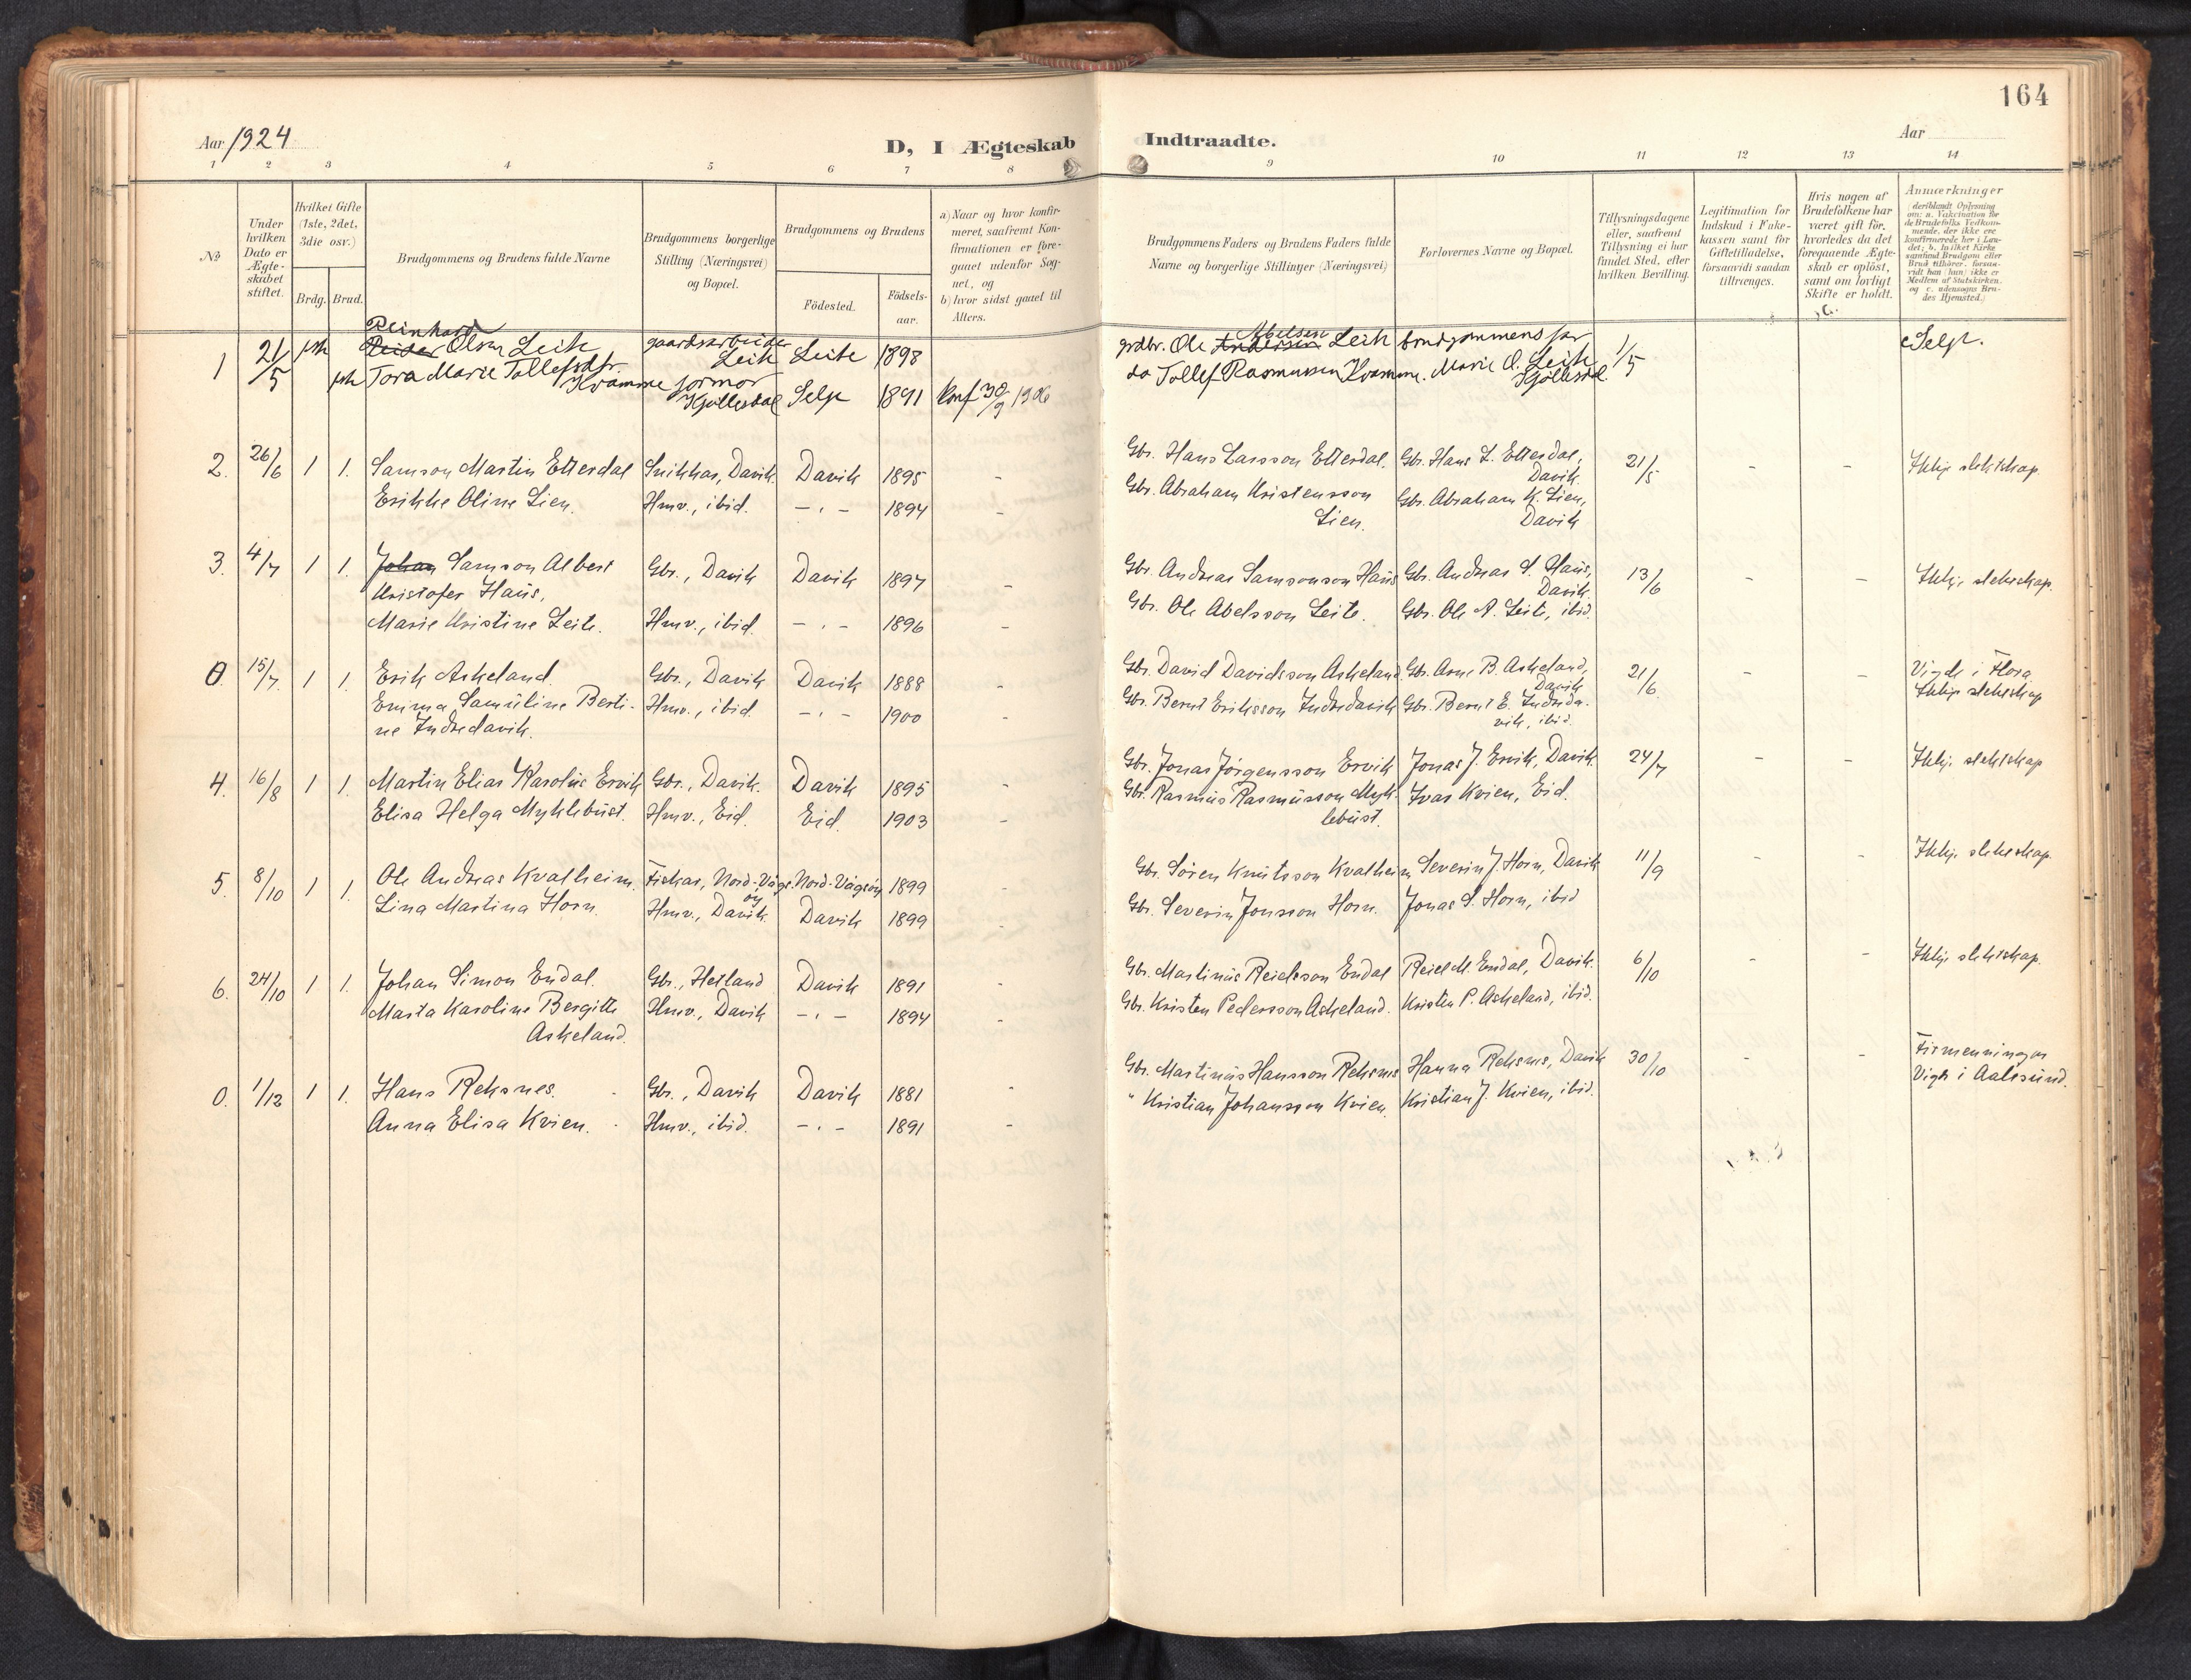 164
Aar 1924
D, I Ægteskab Indtraadte.
Aar
1 2 3 4 5 6 7 8 9 10 11 12 13 14
№
Under
hvilken
Dato er
Ægte-
skabet
stiftet.
Hvilket Gifte
(1ste, 2det,
3die osv.)
Brdg. Brud.
Brudgommens og Brudens fulde Navne
Brudgommens borgerlige
Stilling (Næringsvei)
og Bopæl.
Brudgommens og Brudens
Födested.
Födsels-
aar.
a) Naar og hvor konfir-
meret, saafremt Kon-
firmationen er fore-
gaaet udenfor Sog-
net, og
b) hvor sidst gaaet til
Alters.
Brudgommens Faders og Brudens Faders fulde
Navne og borgerlige Stillinger (Næringsvei)
Forlovernes Navne og Bopæl.
Tillysningsdagene
eller, saafremt
Tillysning ei har
fundet Sted, efter
hvilken Bevilling.
Legitimation for
Indskud i Enke-
kassen samt for
Giftetilladelse,
forsaavidt saadan
tiltrænges.
Hvis nogen af
Brudefolkene har
været gift för,
hvorledes da det
foregaaende Ægte-
skab er oplöst,
samt om lovligt
Skifte er holdt.
Anmærkninger
(deriblandt Oplysning
om: a. Vakcination for
de Brudefolks Vedkom-
mende, der ikke ere
konfirmerede her i Lan-
det; b. hvilket Kirke
samfund Brudgom eller
Brud tilhører, forsaa-
vidt han (hun) ikke er
Medlem af Statskirken,
og c. udensogns Bru-
des Hjemsted.)
Reinhard Abelsen
1 21/5 Olsen Leite gaardsarbeider Leite Leite 1898 grdbr. Ole Andersen Leite brudgommens far 1/5 Selje.
Tora Marie Tollefsdtr. Kvamme jormor Kjöllesdal Selje 1891 konf 30/9 1906 do Tollef Rasmussen Kvamme. Marie O. Leite Kjöllesdal.
2. 26/6 1 1. Samson Martin Etterdal Snikkar, Davik. Davik 1895 - Gbr. Hans Larsson Etterdal. Gbr. Hans L. Etterdal, Davik. 21/5 - - Ikkje slektskap.
Erikke Oline Lien. Hmv., ibid. - " - 1894 - Gbr. Abraham Kristensson Lien. Gbr. Abraham K. Lien, Davik
3. 4/7 1 1. Johan Samson Albert Gbr., Davik Davik 1897 - Gbr. Andreas Samsonson Haus Gbr. Andreas S. Haus, Davik. 13/6 - - Ikkje slektskap.
Kristofer Haus,
Marie Kristine Leite. Hmv., ibid. - " - 1896 - Gbr. Ole Abelsson Leite. Gbr. Ole A. Leite, ibid.
0. 15/7. 1 1. Erik Askeland. Gbr., Davik Davik 1888 - Gbr. David Davidsson Askeland, Gbr. Arne B. Askeland, Davik 21/6 - - Vigde i Flora
Ikkje slektskap
Emma Samuline Berti- Hmv., ibid. - " - 1900 - Gbr. Bernt Eriksson Indredavik Gbr. Bernt E. Indreda-
ne Indredavik. vik, ibid.
4. 16/8 1 1. Martin Elias Karolus Ervik Gbr., Davik. Davik 1895 - Gbr. Jonas Jörgensson Ervik Jonas J. Ervik, Davik. 24/7 - - Ikkje slektskap
Elisa Helga Myklebust. Hmv., Eid. Eid. 1903 - Gbr. Rasmus Rasmusson Myk- Ivar Kvien, Eid.
lebust.
5. 8/10 1 1. Ole Andreas Kvalheim. Fiskar, Nord-Vågsöy Nord-Vågsöy 1899 - Gbr. Sören Knutsson Kvalheim Severin J. Horn, Davik 11/9 - - Ikkje slektskap.
Lina Martina Horn. Hmv., Davik. Davik 1899 - Gbr. Severin Jonsson Horn. Jonas S. Horn, ibid
6. 24/10 1 1. Johan Simon Endal. Gbr., Hetland Davik 1891 - Gbr. Martinus Reielsson Endal Reiel M. Endal, Davik. 6/10 - - Ikkje slektskap.
Marta Karoline Bergitte Hmv., Davik - " - 1894 - Gbr. Kristen Pedersson Askeland. Kristen P. Askeland, ibid.
Askeland.
0. 1/12 1 1. Hans Reksnes. Gbr., Davik Davik 1881 - Gbr. Martinus Hansson Reksnes Hanna Reksnes, Davik 30/10 - - Firmenningar
Vigde i Aalesund.
Anna Elisa Kvien. Hmv., ibid. - " - 1891 - " Kristian Johansson Kvien. Kristian J. Kvien, ibid.